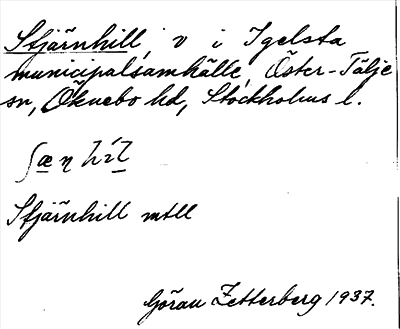 Stjärnhill, v i Igelsta
municipalsamhälle, Öster-Tälje
sn, Öknebo hd, Stockholms l.
Stjärnhill mtll
Göran Zetterberg 1937.